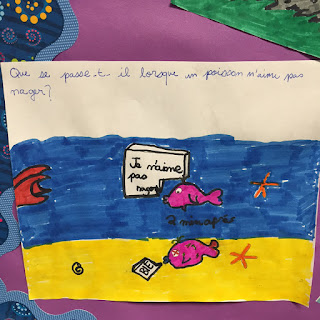 Que se passe-t-il lorsque un poisson n'aime pas
nager?
Je n'aime
pas
nager
2 mois après